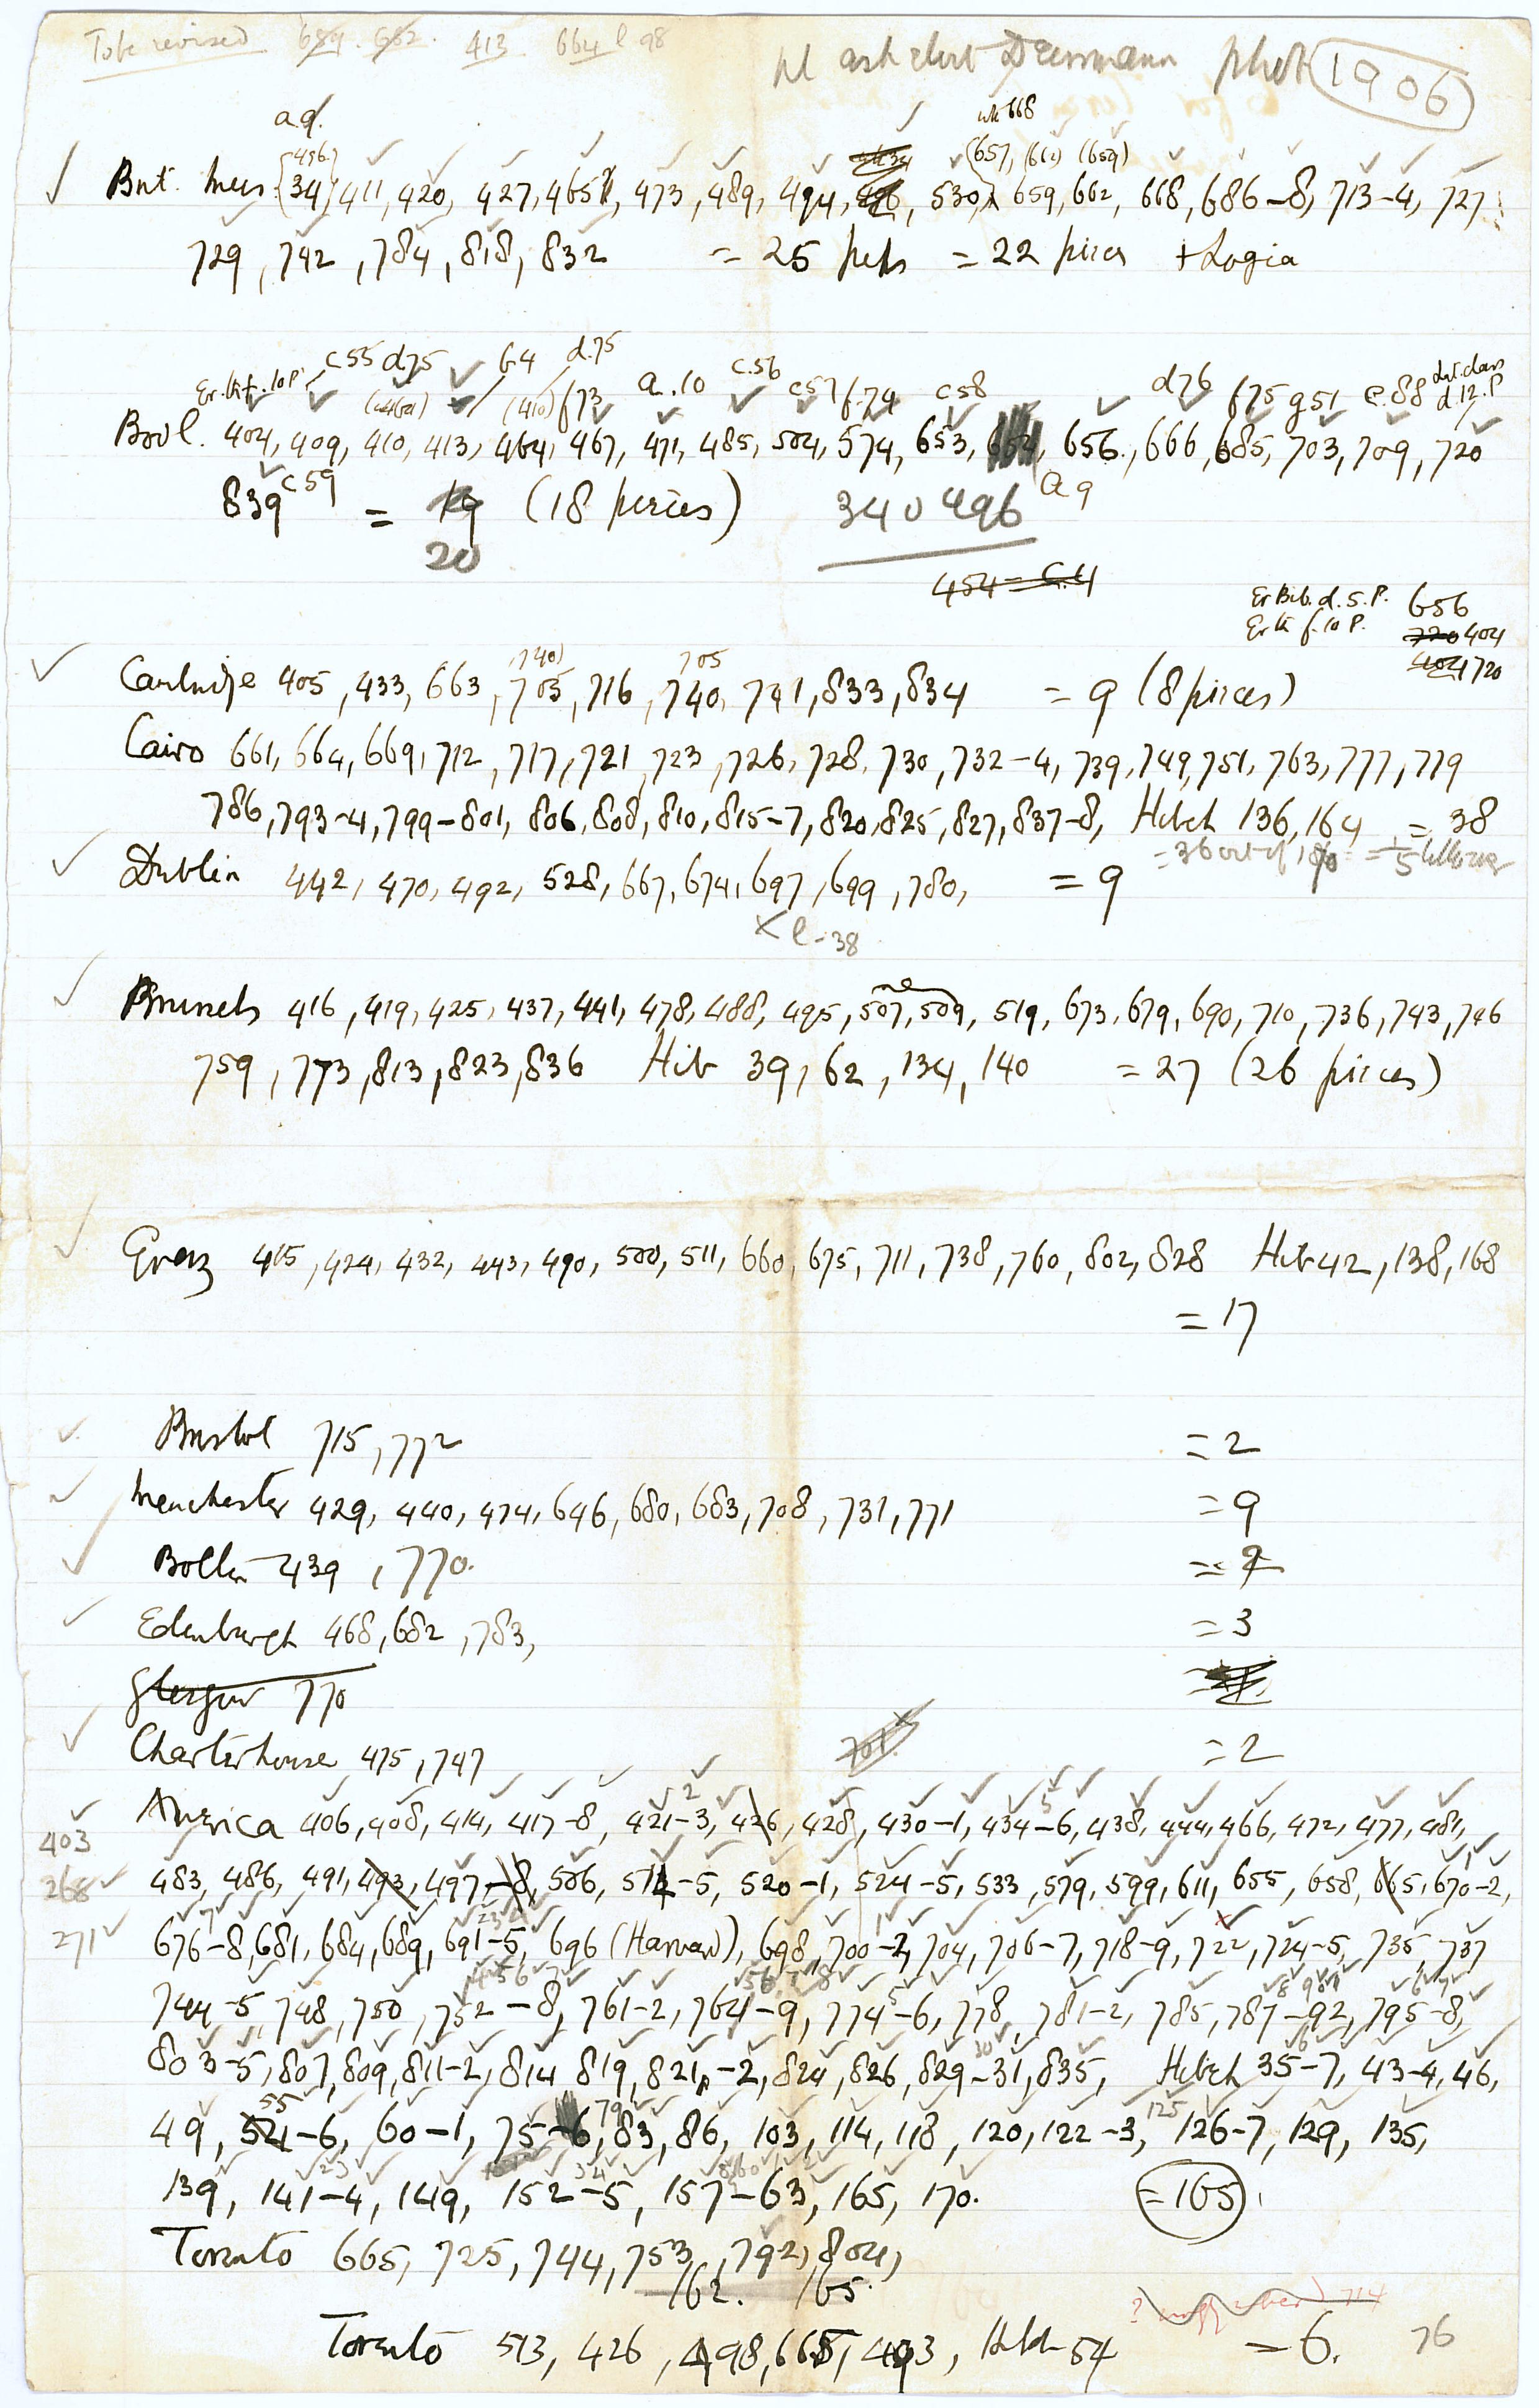 To be revised 689. 662. 413 664 e 98
phot 1906
a.9. wh 668
(496) (657, (662) (659)
Brit. Mus. {34} 411, 420, 427, 465, 473, 489, 494, 496, 530, 659, 662, 668, 686–8, 713–4, 727,
729, 742, 784, 818, 832 = 25 = 22 pieces + Logia
Gr. th f. 10 P. c 55 d 75 b 4 d. 75 a. 10 c. 56 c 57 f. 74 c 58 d 76 f 75 g 51 e. 88 Lat. class d. 12. P
(410) f 73
Bodl. 404, 409, 410, 413, 464, 467, 471, 485, 504, 574, 653, 656, 666, 685, 703, 709, 720
839 c 59 = 19 (18 pieces) 340 496 a 9
20
454 = G. 4
Gr Bib. d. 5. P. 656
Gr th f. 10 P. 720 404
404 720
(740) 705
Cambridge 405, 433, 663, 705, 716, 740, 741, 833, 834 = 9 (8 pieces)
Cairo 661, 664, 669, 712, 717, 721, 723, 726, 728, 730, 732–4, 739, 749, 751, 763, 777, 779
786, 793–4, 799–801, 806, 808, 810, 815–7, 820, 825, 827, 837–8, Hibeh 136, 164 = 38
= 36 out of
Dublin 442, 470, 492, 528, 667, 674, 697, 699, 780, = 9
× e – 38
Brussels 416, 419, 425, 437, 441, 478, 488, 495, 507, 509, 519, 673, 679, 690, 710, 736, 743, 746
759, 773, 813, 823, 836 Hib 39, 62, 134, 140 = 27 (26 pieces)
Graz 415, 424, 432, 443, 490, 500, 511, 660, 675, 711, 738, 760, 802, 828 Hib 42, 138, 168
= 17
Bristol 715, 772 = 2
Manchester 429, 440, 474, 646, 680, 683, 708, 731, 771 = 9
Bolton 439, 770. = 2
Edenburgh 468, 682, 783, = 3
Glasgow 770
Charterhouse 475, 747 701 = 2
America 406, 408, 414, 417–8, 421–3, 426, 428, 430–1, 434–6, 438, 444, 466, 472, 477, 481,
403
268 483, 486, 491, 493, 497–8, 506, 514–5, 520–1, 524–5, 533, 579, 599, 611, 655, 658, 665, 670–2,
271 676–8, 681, 684, 689, 691–5, 696 (Harvard), 698, 700–2, 704, 706–7, 718–9, 722, 724–5, 735, 737
744–5, 748, 750, 752–8, 761–2, 764–9, 774–6, 778, 781–2, 785, 787–92, 795–8,
803–5, 807, 809, 811–2, 814, 819, 821–2, 824, 826, 829–31, 835, Hibeh 35–7, 43–4, 46,
49, 54–6, 60–1, 75–6, 79 83, 86, 103, 114, 118, 120, 122–3, 125 126–7, 129, 135,
139, 141–4, 149, 152–5, 157–63, 165, 170. = 165
Toronto 665, 725, 744, 753, 792, 804,
162. 165.
714
Toronto 513, 426, 498, 665, 493, Hibh 54 = 6. 76